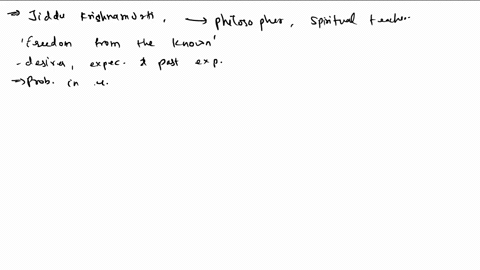 ⇒ Jiddu Krishnamurti, → philosopher, spiritual teacher.
'Freedom from the known'
- desires, expec. & past exp.
→ Prob. in